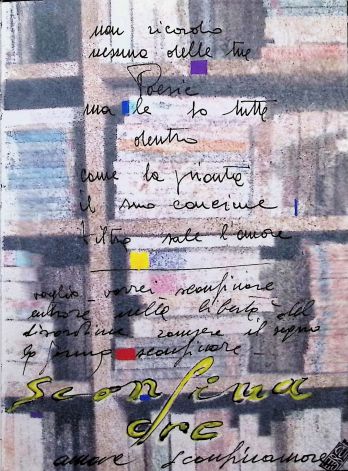 non ricordo
nessuna delle tue
Poesie
ma le so tutte
dentro
come la pianta
il suo concime
filtro sale l'amore
voglio vorrei sconfinare
amore nella libertà del
disordine rompere il segno
la forma sconfinare
Sconfina
are
amore sconfinamore